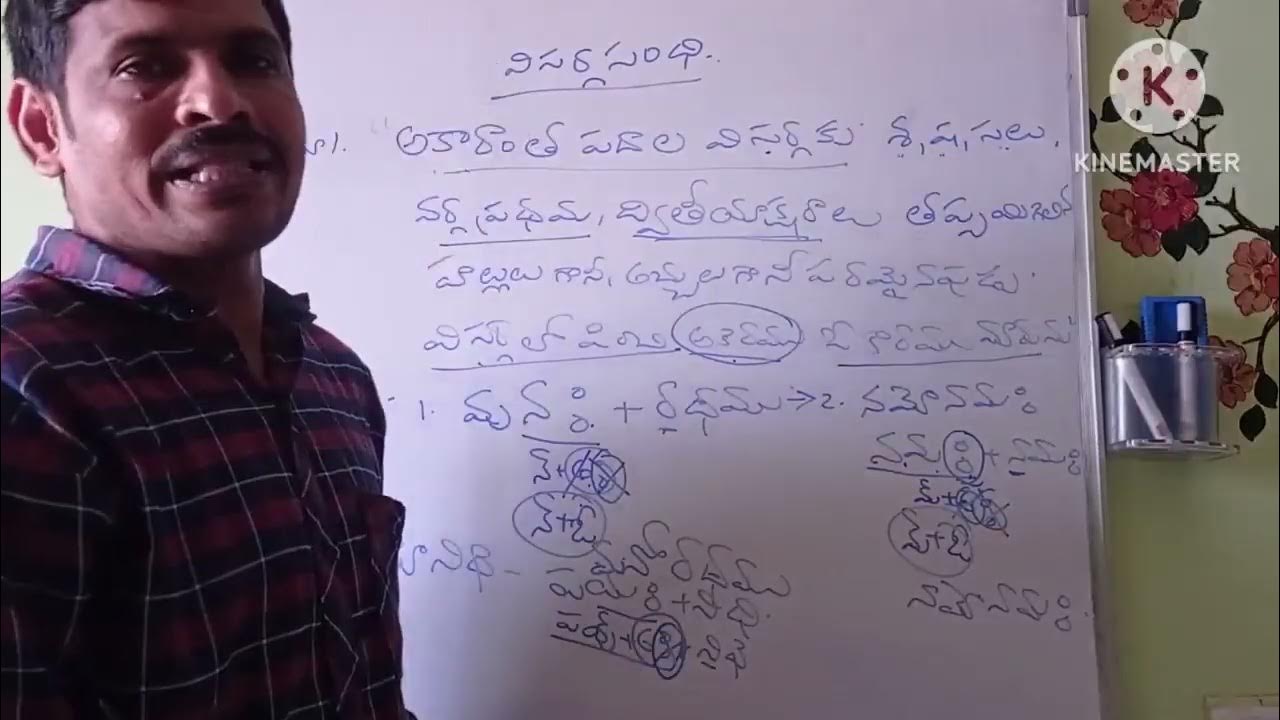 విసర్గసంధి..
సూ1. అకారాంత పదాల విసర్గకు శ, ష, సలు,
వర్గప్రథమ, ద్వితీయాక్షరాలు తప్ప మిగిలిన
హల్లులు గానీ, అచ్చులు గానీ పరమైనపుడు
విసర్గ లోపించి అకారము ఓ కారము మారును
1. మనః + రథము → 2. నమోనమః
నమః + నమః
న్+అః
మ్+అః
న్+ఓ
మ్+ఓ
మనోరథము
పయః + నిధి
నమోనమః.
పయ్+అః నిధి
K
KINEMASTER